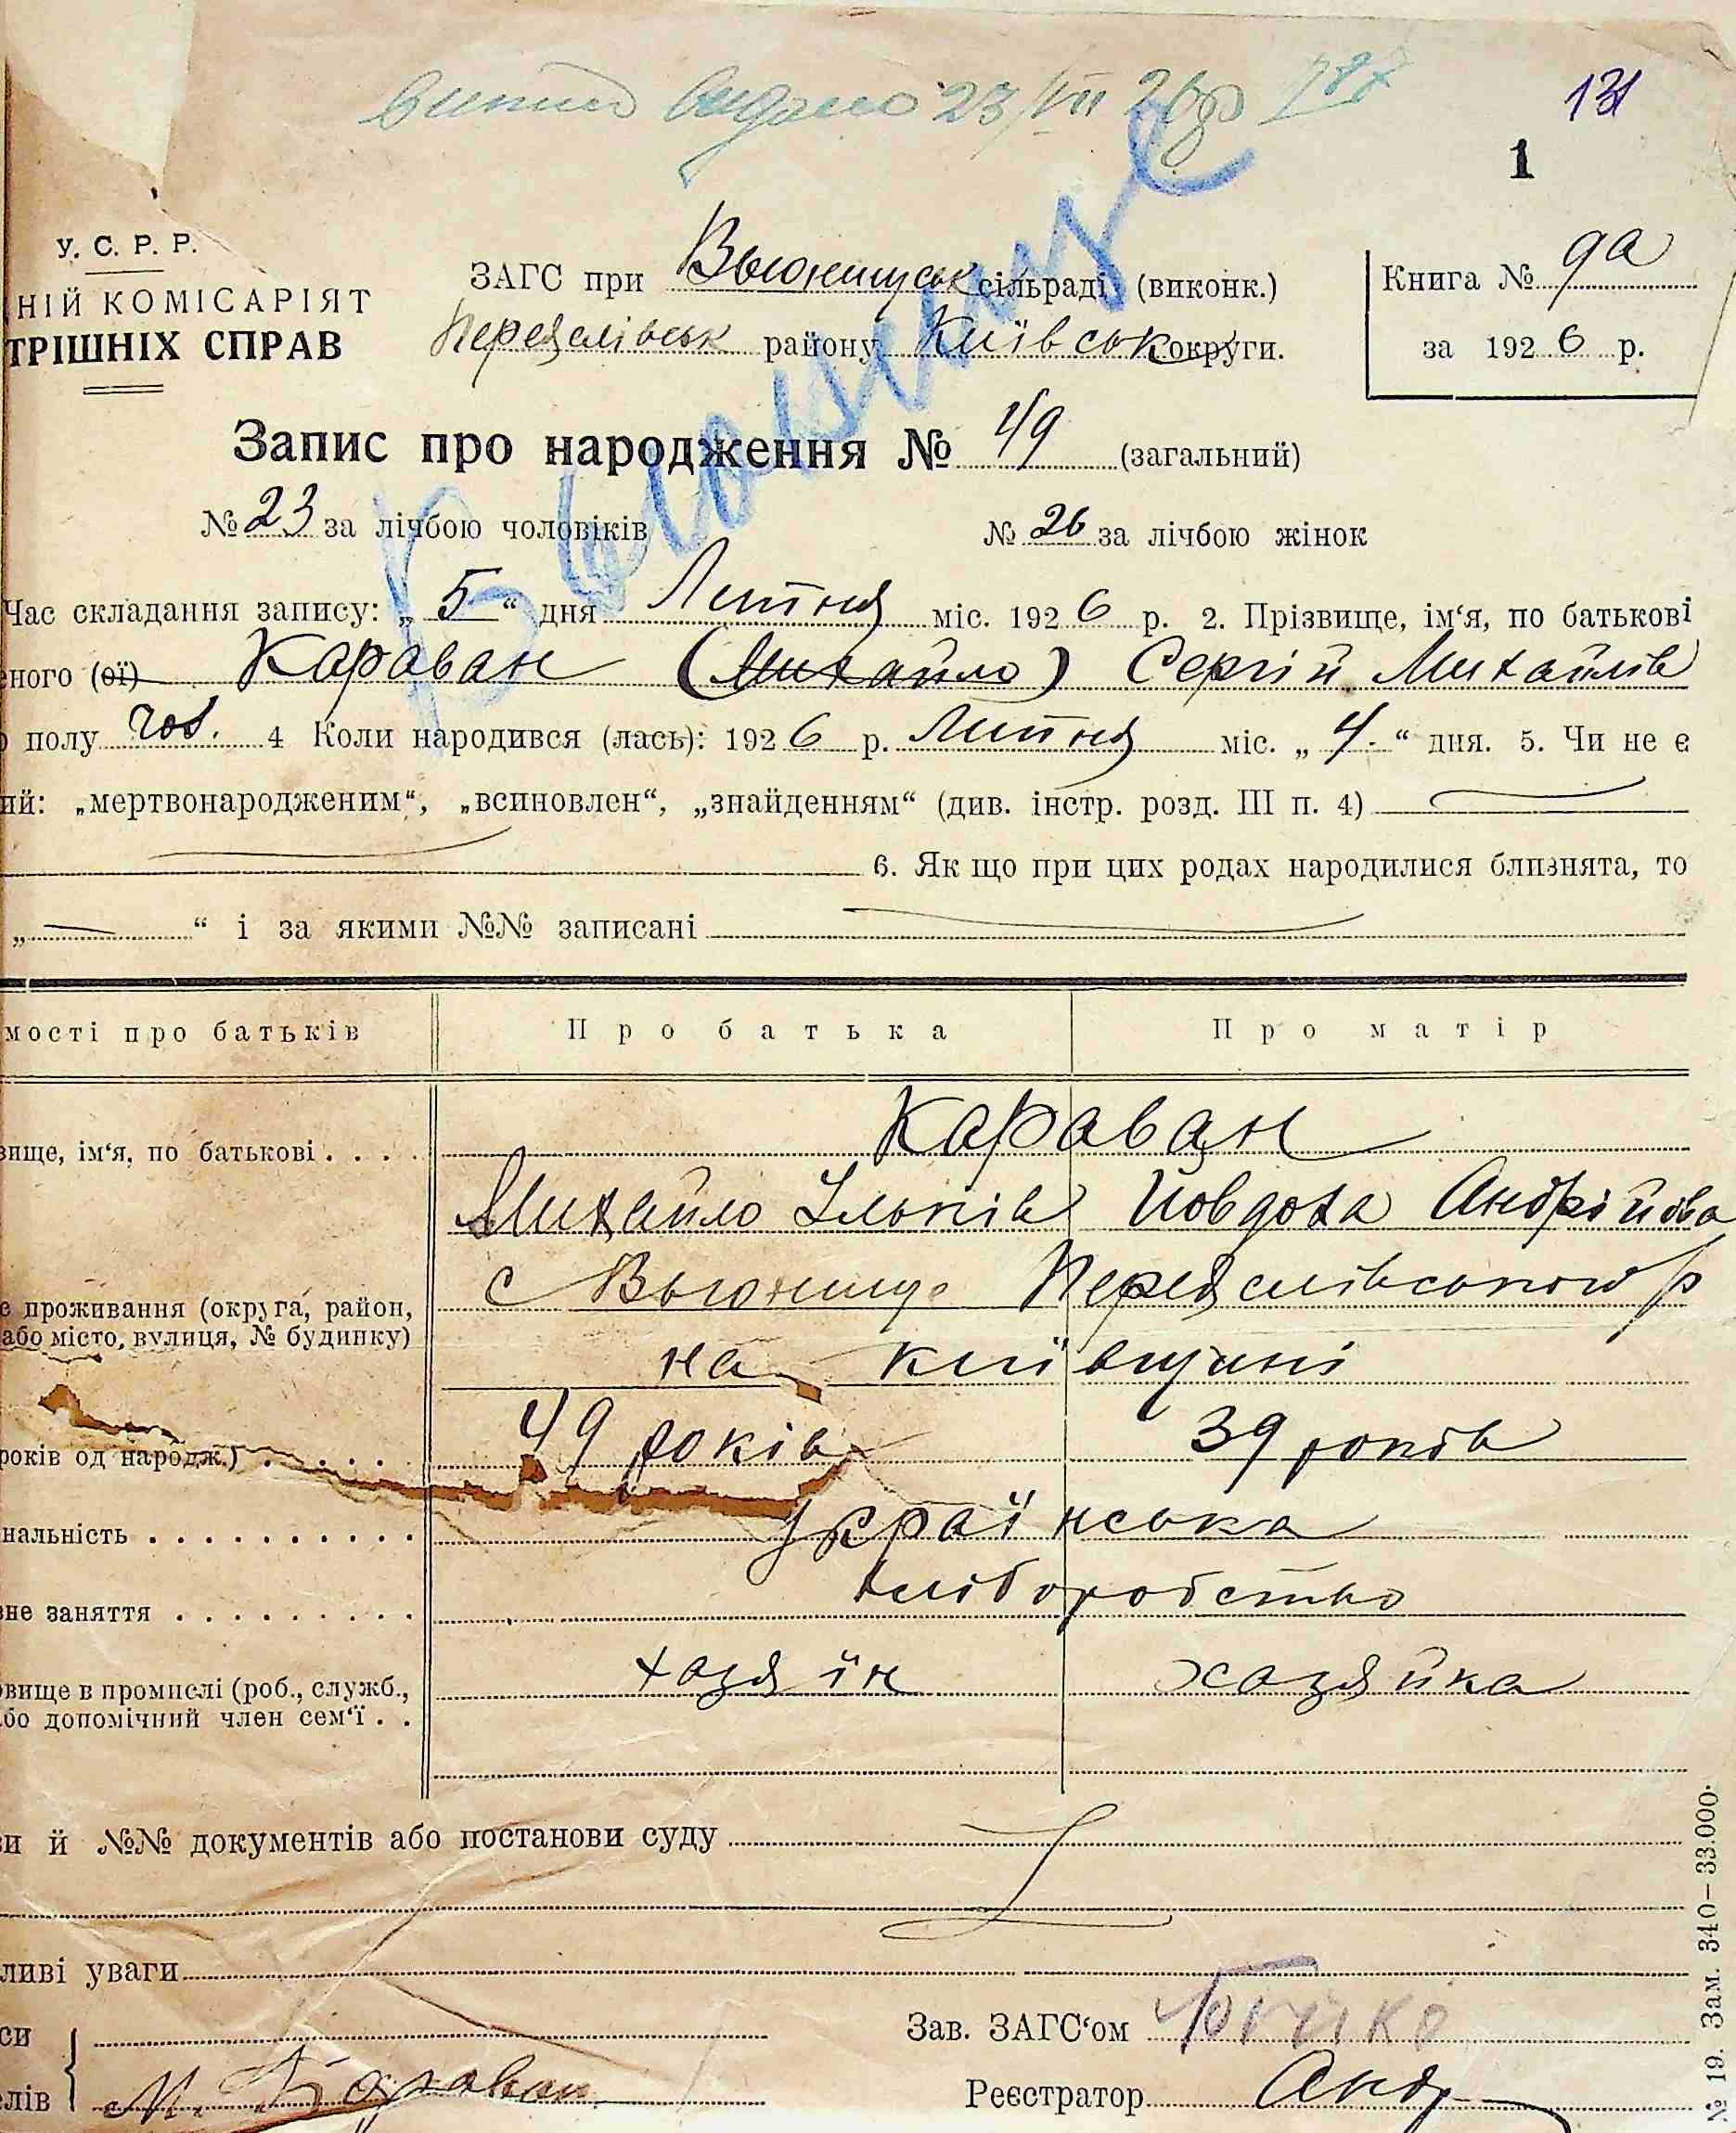 витяг видано 23/VII 26 р
131
1
У. С. Р. Р.
НІЙ КОМІСАРІЯТ
ТРІШНІХ СПРАВ
ЗАГС при Вьюнищськ сільраді (виконк.)
Переяслівськ району Київськ округи.
Книга № 9а
за 1926 р.
Вьюнище
Запис про народження № 49 (загальний)
№ 23 за лічбою чоловіків № 26 за лічбою жінок
Час складання запису: „ 5 “ дня Липня міс. 1926 р. 2. Прізвище, ім‘я, по батькові
ного (ої) Караван (Михайло) Сергій Михайлів
полу чол. 4 Коли народився (лась): 1926 р. Липня міс. „ 4. “ дня. 5. Чи не є
ий: „мертвонародженим“, „всиновлен“, „знайденням“ (див. інстр. розд. III п. 4)
6. Як що при цих родах народилися близнята, то
„ — “ і за якими №№ записані
мості про батьків Про батька Про матір
вище, ім‘я, по батькові . . . . Караван
Михайло Ільків Йовдоха Андрійова
е проживання (округа, район, с Вьюнище Переяслівського р
або місто, вулиця, № будинку)
на Київщині
років од народж.) . . . . . 49 років 39 років
нальність . . . . . . . . . . Українська
не заняття . . . . . . . . . Хліборобство
вище в промислі (роб., служб., хазяїн хазяйка
бо допомічний член сем‘ї . .
и й №№ документів або постанови суду
ливі уваги
си Зав. ЗАГС‘ом
лів М. Караван Реєстратор
№ 19. Зам. 340—33.000.